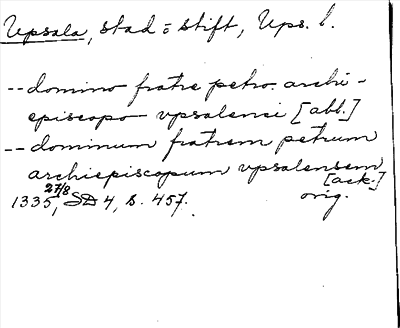 Upsala, stad o stift, Ups. l.
-- domino fratre petro. archi-
episcopo upsalensi [abl.]
-- dominum fratrem petrum
archiepiscopum upsalensem
[ack.]
1335 27/8, SD 4, s. 457. orig.